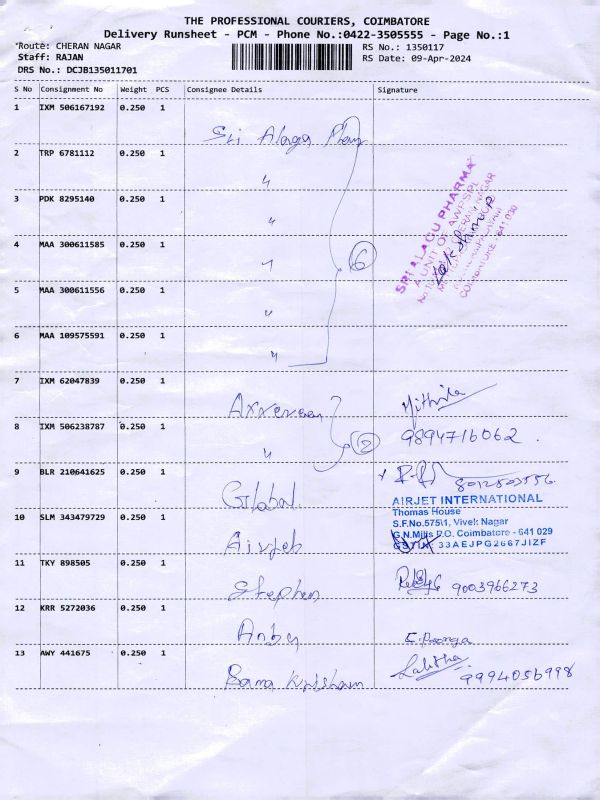 THE PROFESSIONAL COURIERS, COIMBATORE
Delivery Runsheet - PCM - Phone No.:0422-3505555 - Page No.:1
Route: CHERAN NAGAR
RS No.: 1350117
Staff: RAJAN
RS Date: 09-Apr-2024
DRS No.: DCJB135011701
S No Consignment No Weight PCS Consignee Details Signature
1 IXM 506167192 0.250 1
Sri Alaga Pham
2 TRP 6781112 0.250 1
"
3 PDK 8295140 0.250 1
"
SRI ALAGU PHARMA
A UNIT OF AWFSRL
COIMBATORE - 641 030
4 MAA 300611585 0.250 1
" 6
5 MAA 300611556 0.250 1
"
6 MAA 109575591 0.250 1
"
7 IXM 62047839 0.250 1
Mithila
8 IXM 506238787 0.250 1
" 2
9894716062.
9 BLR 210641625 0.250 1
Global
AIRJET INTERNATIONAL
Thomas House
S.F.No.575\1, Vivek Nagar
10 SLM 343479729 0.250 1
Airjet
G.N.Mills P.O. Coimbatore - 641 029
GSTIN 33AEJPG2667J1ZF
11 TKY 898505 0.250 1
Stephen
9003966273
12 KRR 5272036 0.250 1
Anbu
13 AWY 441675 0.250 1
Rama Krisham
Lalitha
9994056998